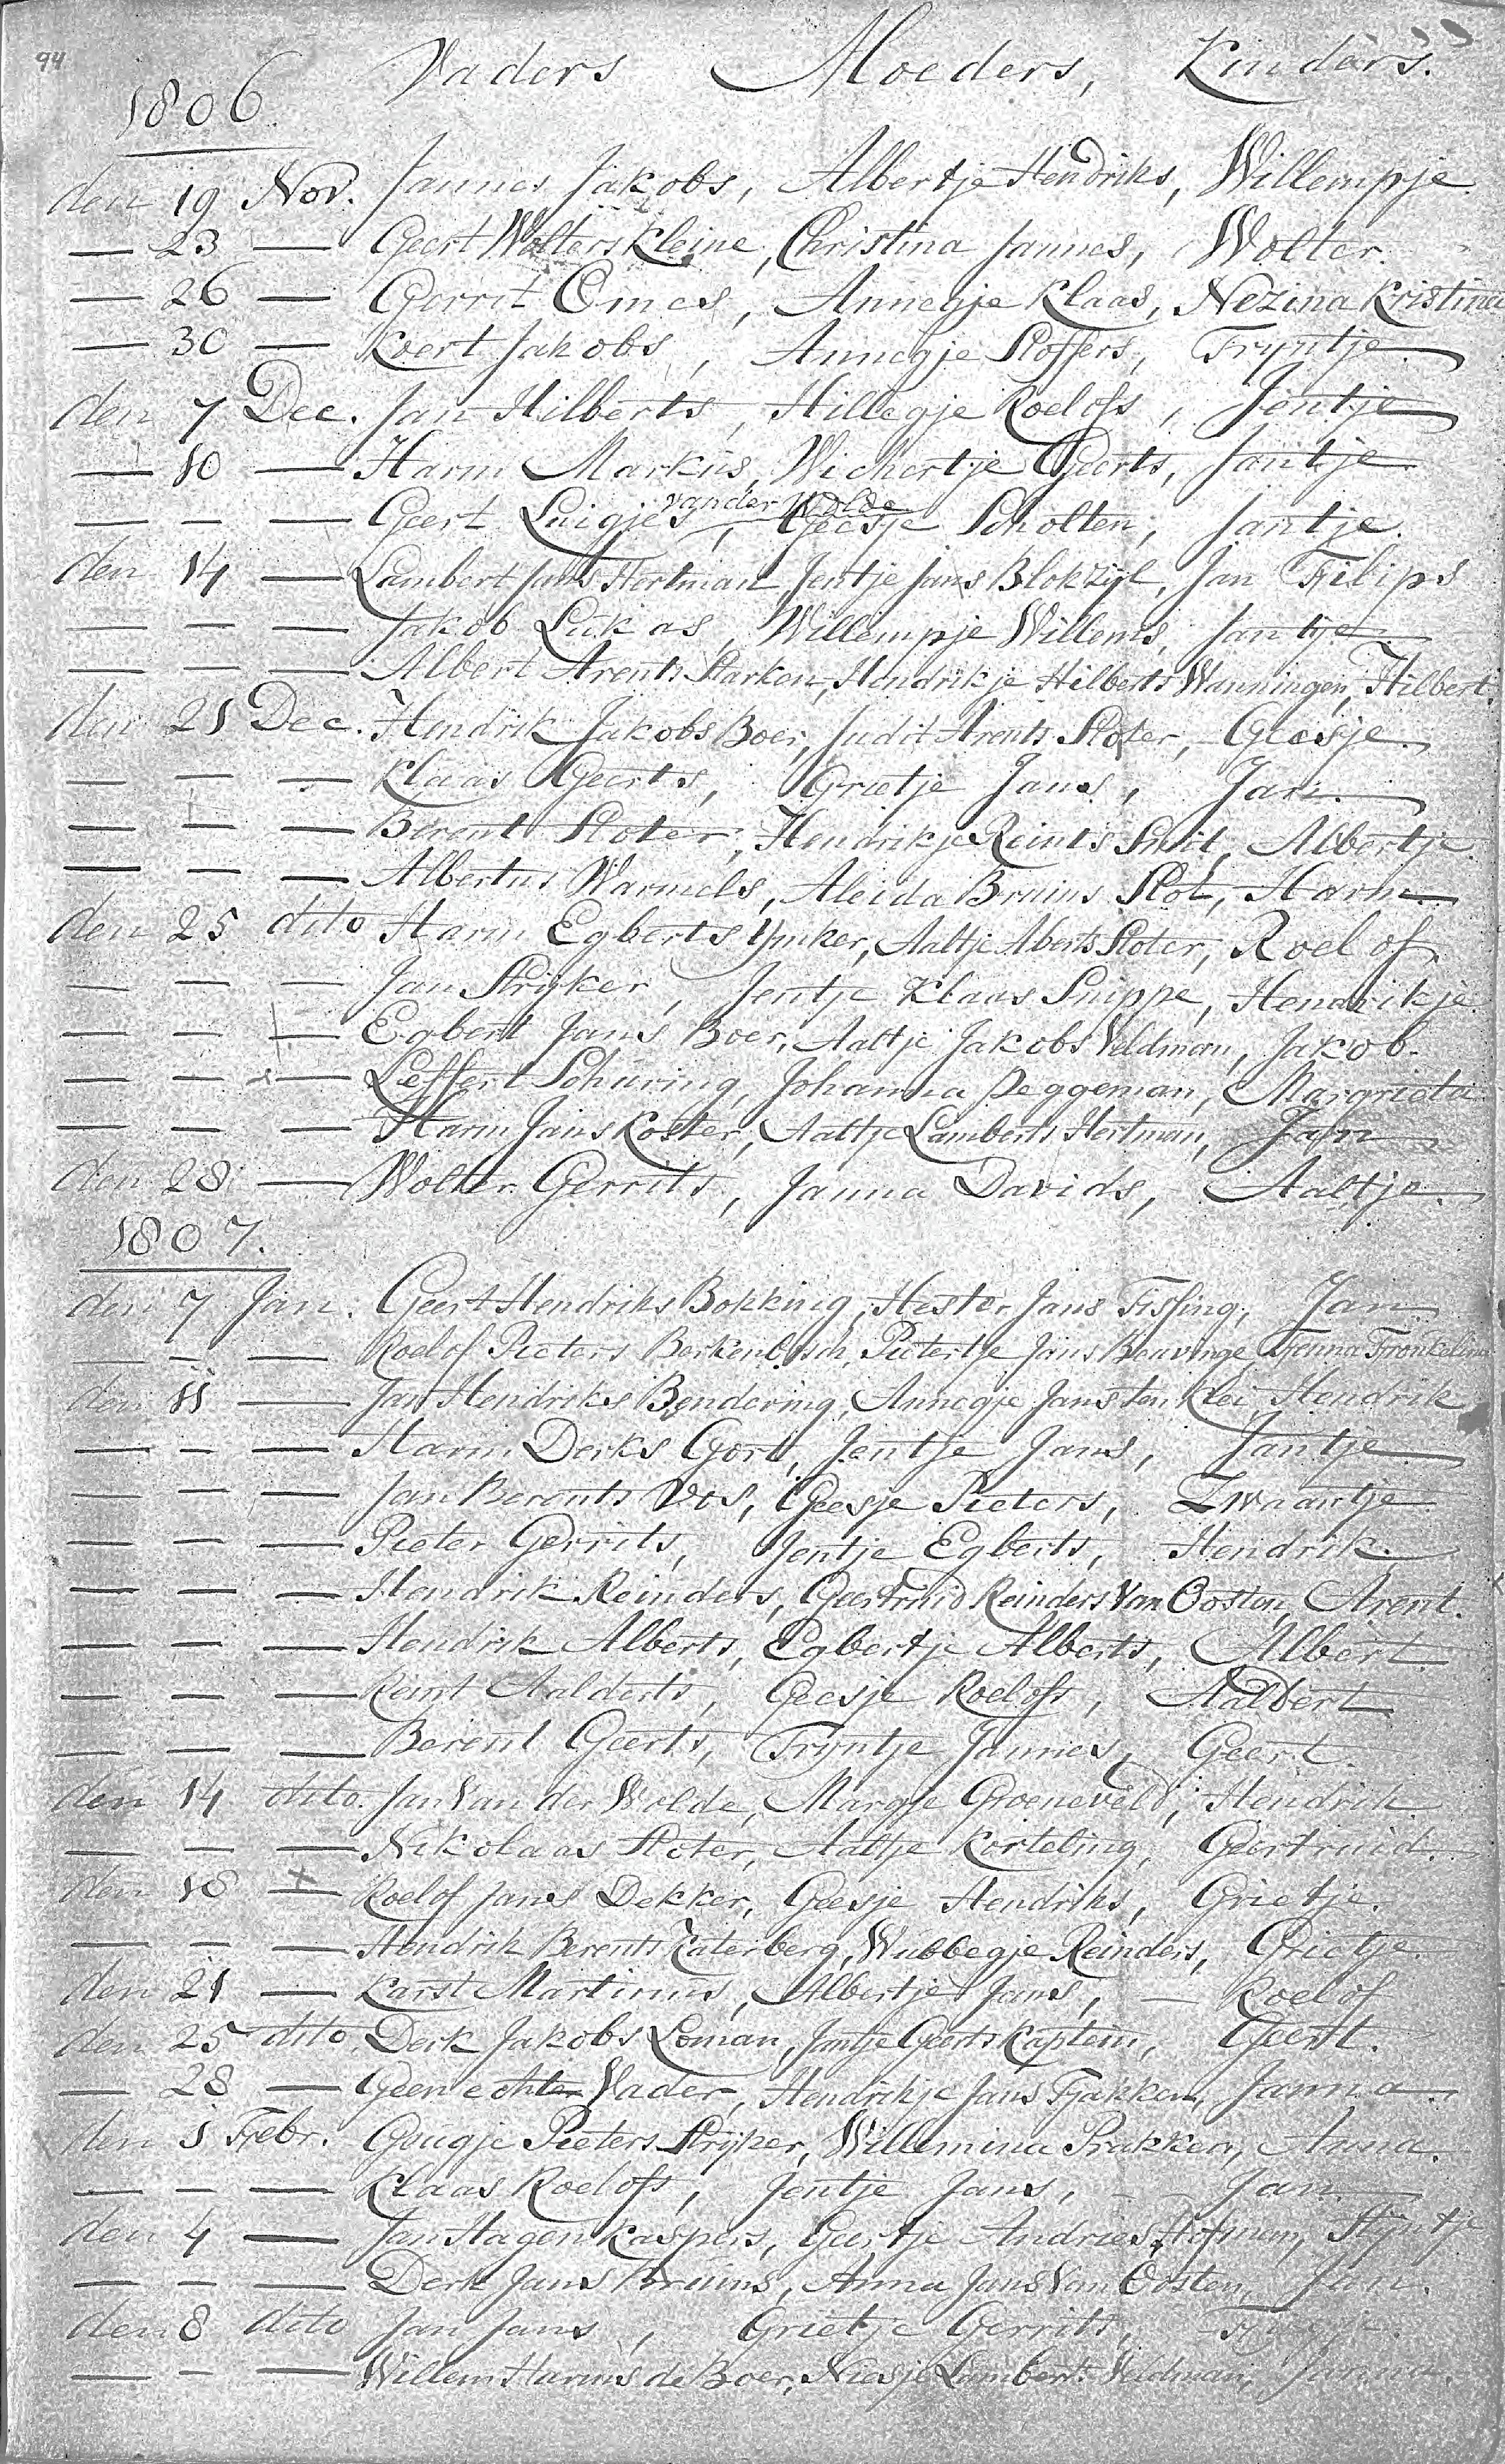 94
Vaders Moeders, Kinders.
1806.
den 19 Nov. Jannes Jakobs, Albertje Hendriks, Willempje
— 23 — Geert Wolters Kleine, Christina Jannes, Wolter.
— 26 — Gerrit Omes, Annegje Klaas, Nezina Kristina
— 30 — Koert Jakobs, Annegje Stoffers, Tryntje
den 7 Dec. Jan Hilberts, Hillegje Roelofs, Jentje
— 10 — Harm Markus, Wichertje Geerts, Jantje
van der Wolde
— — — Geert Luigjes, Geesje Scholten, Jantje.
den 14 — Lambert Jans Hertman, Jentje Jans Blokzyl, Jan Filips
— — — Jakob Lukas, Willempje Willems, Jantje
— — — Albert Arents Starken, Hendrikje Hilberts Wanningen, Hilbert.
den 21 Dec. Hendrik Jakobs Boer, Judit Arents Sloter, Geesje.
— — — Klaas Geerts, Grietje Jans, Jan.
— — — Berent Sloter, Hendrikje Reints Smit, Albertje
— — — Albertus Warmels, Aleida Bruins Slot, Harm
den 25 dito Harm Egberts Ymker, Aaltje Alberts Sloter, Roelof
— — — Jan Stryker, Jentje Klaas Snippe, Hendrikje
— — — Egbert Jans Boer, Aaltje Jakobs Veldman, Jakob.
— — — Leffert Schuring, Johanna Deggeman, Margrieta
— — — Harm Jans Koster, Aaltje Lamberts Hertman, Jan
den 28 — Wolter Gerrits, Janna Davids, Aaltje
1807.
den 7 Jan. Geert Hendriks Bokking, Hester Jans Tissing, Jan
— — — Roelof Pieters Berkenbosch, Pietertje Jans Bouvinge,
den 11 — Jan Hendriks Bendering, Annegje Jans ten Klei, Hendrik
— — — Harm Derks Gort, Jentje Jans, Jantje
— — — Jan Berents Vos, Geesje Pieters, Zwaantje
— — — Pieter Gerrits, Jentje Egberts, Hendrik.
— — — Hendrik Reinders, Geertruid Reinders Van Oosten, Arent.
— — — Hendrik Alberts, Egbertje Alberts, Albert
— — — Reint Aalderts, Geesje Roelofs, Aaldert
— — — Berent Geerts, Tryntje Jannes, Geert.
den 14 dito. Jan Van der Wolde, Margje Groeneveld, Hendrik
— — — Nikolaas Sloter, Aaltje Korteling, Geertruid.
den 18 — Roelof Jans Dekker, Geesje Hendriks, Grietje.
— — — Hendrik Berents Eaterberg, Wubbegje Reinders, Grietje.
den 21 — Karst Martinus, Albertje Jans, — Roelof
den 25 dito Derk Jakobs Loman, Jantje Geerts Kaptein, Geert.
— 28 — Geen echter Vader, Hendrikje Jans Fjakken, Janna
den 1 Febr. Geugje Pieters Stryker, Willemina Prakken, Anna.
— — — Klaas Roelofs, Jentje Jans, — Jan
den 4 — Jan Hagen Kaspers, Geertje Andries Hofman, Styntje
— — — Derk Jans Bruins, Anna Jans Van Oosten, Jan.
den 8 dito Jan Jans, Grietje Gerrits,
— — — Willem Harms de Boer, Niesje Lamberts Veldman,